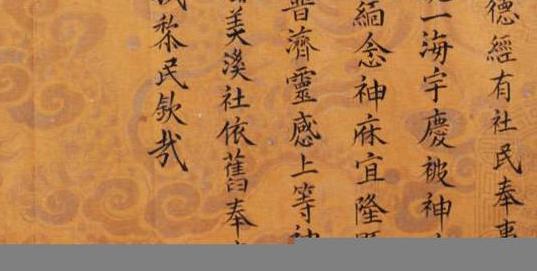 德經有社民奉事
一海宇慶被神
緬念神庥宜隆
普濟靈感上等神
美溪社依舊奉
黎民欽哉